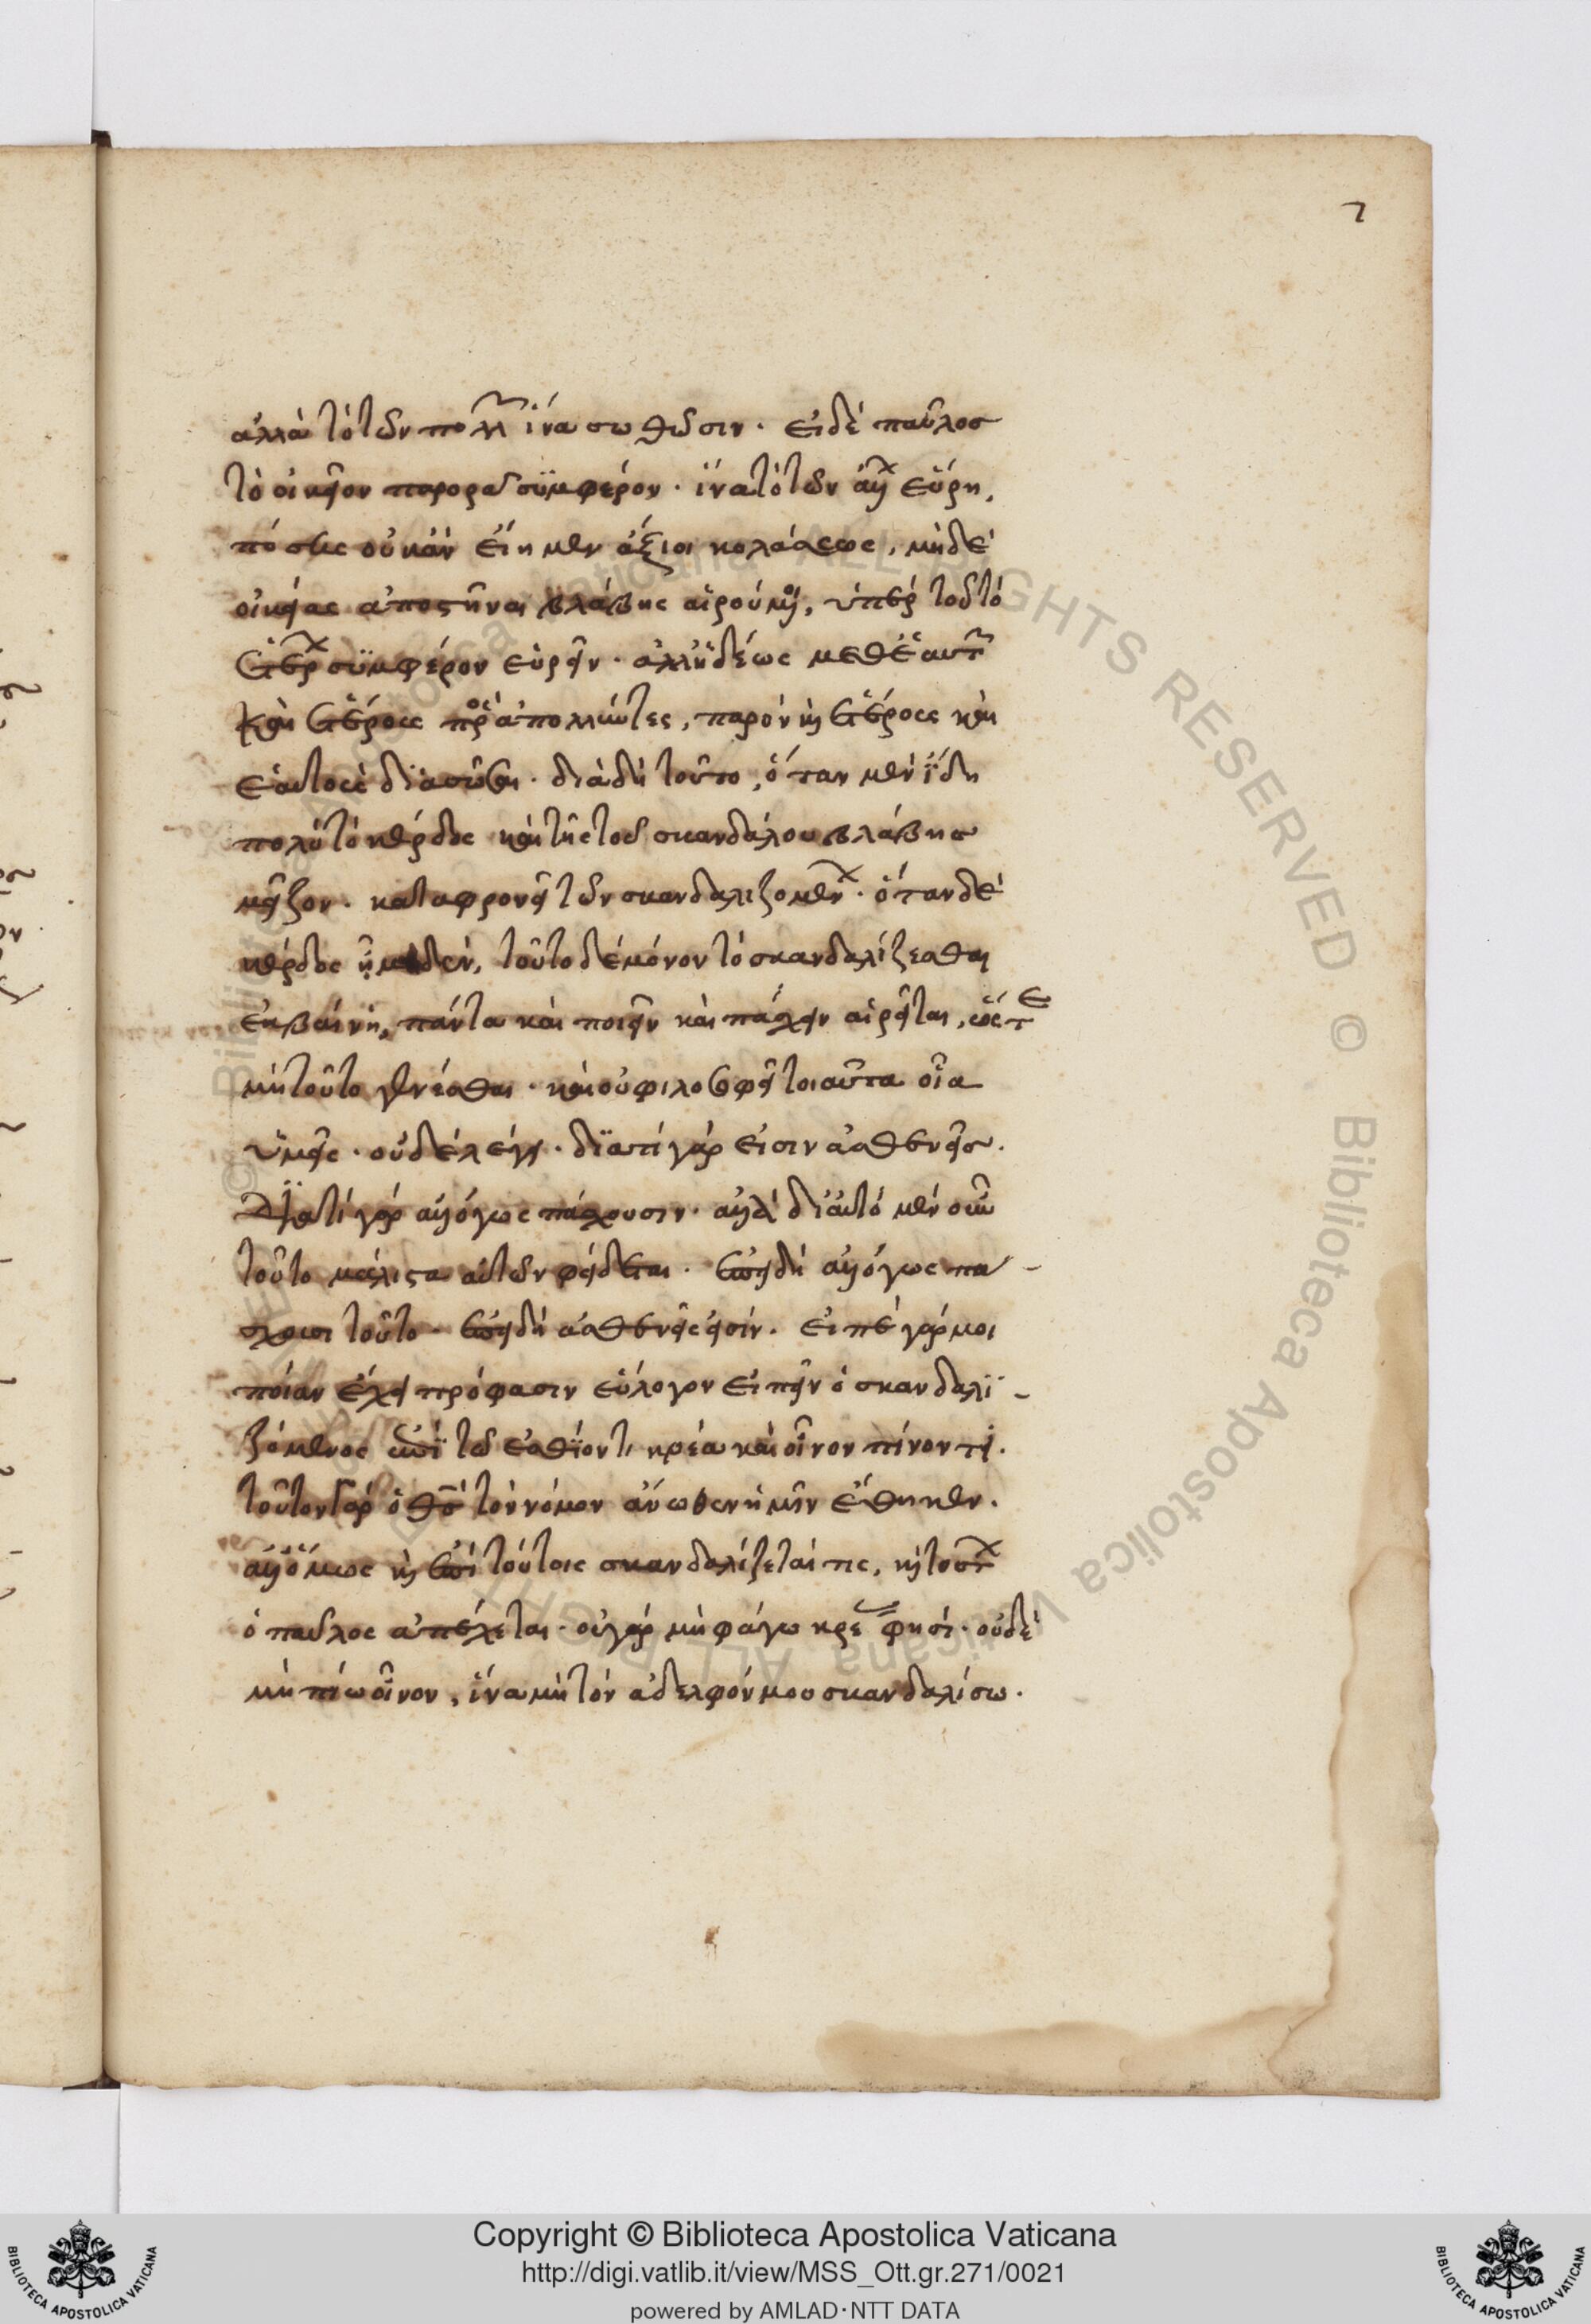 7
ἀλλὰ τὸ τῶν πολλῶν ἵνα σωθῶσιν· εἰ δὲ παῦλος
τὸ οἰκεῖον παρορᾶ συμφέρον· ἵνα τὸ τῶν ἄλλων εὕρη,
πόσης οὐκ ἂν εἴημεν ἄξιοι κολάσεως, μηδὲ
οἰκείας ἀποστῆναι βλάβης αἱρούμενοι, ὑπὲρ τοῦ τὸ
ἑτέρων συμφέρον εὑρεῖν· ἀλλ' ἡδέως μεθ' ἑαυτῶν
καὶ ἑτέρους προσαπολλύντες, παρὸν καὶ ἑτέρους καὶ
ἑαυτοὺς διασῶσαι· διὰ δὴ τοῦτο, ὅταν μὲν ἴδη
πολὺ τὸ κέρδος καὶ τῆς τοῦ σκανδάλου βλάβης
μεῖζον· καταφρονεῖ τῶν σκανδαλιζομένων· ὅταν δὲ
κέρδος ἦ μηδὲν, τοῦτο δὲ μόνον τὸ σκανδαλίζεσθαι
ἐκβαίνη, πάντα καὶ ποιεῖν καὶ πάσχειν αἱρεῖται, ὥστε
μὴ τοῦτο γενέσθαι· καὶ οὐ φιλοσοφεῖ τοιαῦτα οἷα
ὑμεῖς· οὐδὲ λέγει· διατί γάρ εἰσιν ἀσθενεῖς·
διατί γὰρ ἀλόγως πάσχουσιν· ἀλλὰ δι' αὐτὸ μὲν οὖν
τοῦτο μάλιστα αὐτῶν φείδεται· ἐπειδὴ ἀλόγως πά-
σχουσι τοῦτο· ἐπειδὴ ἀσθενεῖς εἰσίν· εἰπὲ γάρ μοι
ποίαν ἔχει πρόφασιν εὔλογον εἰπεῖν ὁ σκανδαλι-
ζόμενος ἐπὶ τῶ ἐσθίοντι κρέα καὶ οἶνον πίνοντι·
τοῦτον γὰρ ὁ θεὸς τὸν νόμον ἄνωθεν ἡμῖν ἔθηκεν·
ἀλλ' ὅμως καὶ ἐπὶ τούτοις σκανδαλίζεταί τις, καὶ τούτων
ὁ παῦλος ἀπέχεται· οὐ γὰρ μὴ φάγω κρέας φησί· οὐδὲ
μὴ πίω οἶνον, ἵνα μὴ τὸν ἀδελφόν μου σκανδαλίσω·
Copyright © Biblioteca Apostolica Vaticana
http://digi.vatlib.it/view/MSS_Ott.gr.271/0021
powered by AMLAD·NTT DATA